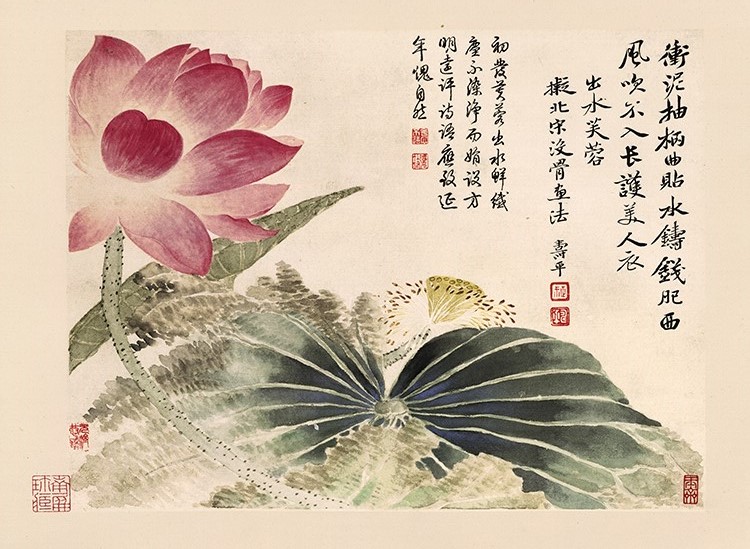 衝泥抽柄曲貼水鑄錢肥西
風吹不入長護美人衣
出水芙蓉
擬北宋沒骨畫法 壽平
初發芙蓉出水鮮纖
塵不染淨而娟設方
明遠评詩語應教延
年愧自然